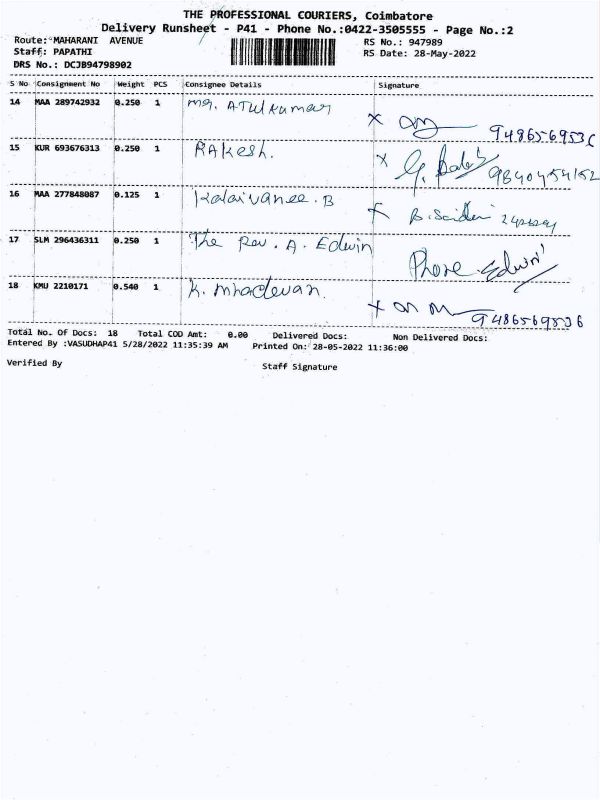 THE PROFESSIONAL COURIERS, Coimbatore
Delivery Runsheet - P41 - Phone No.:0422-3505555 - Page No.:2
Route: MAHARANI AVENUE RS No.: 947989
Staff: PAPATHI RS Date: 28-May-2022
DRS No.: DCJB94798902
S No Consignment No Weight PCS Consignee Details Signature
14 MAA 289742932 0.250 1 Mr. Atulkumar x 9486569536
15 KUR 693676313 0.250 1 RAKesh. x G. 9840454152
16 MAA 277848087 0.125 1 Kalaivanee. B B.
17 SLM 296436311 0.250 1 The Rev. A. Edwin Phone Edwin
18 KMU 2210171 0.540 1 K. Mhadevan. x 9486569536
Total No. Of Docs: 18 Total COD Amt: 0.00 Delivered Docs: Non Delivered Docs:
Entered By :VASUDHAP41 5/28/2022 11:35:39 AM Printed On: 28-05-2022 11:36:00
Verified By Staff Signature